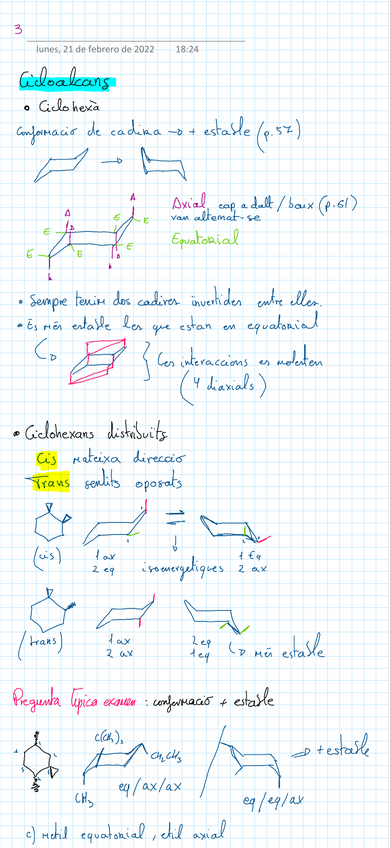 3
lunes, 21 de febrero de 2022 18:24
Cicloalcans
• Ciclohexà
Conformació de cadira → + estable (p.57)
A A
E E A Axial cap a dalt / baix (p.61)
van alternant-se
E E A E Equatorial
A
• Sempre tenim dos cadires invertides entre elles.
• És més estable les que estan en equatorial
Les interaccions es molesten
(4 diaxials)
• Ciclohexans distribuïts
Cis mateixa direcció
Trans sentits oposats
(cis) 1 ax 1 Eq
2 eq isoenergetiques 2 ax
(trans) 1 ax 2 eq
2 ax 1 eq més estable
Pregunta típica examen : conformació + estable
CH₂CH₃ ⇒ + estable
CH₃ eq/ax/ax
eq/eq/ax
c) Metil equatorial, etil axial